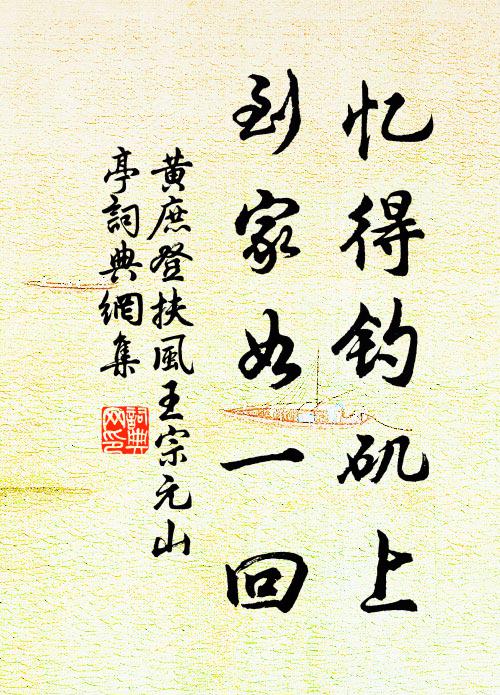 忆得钓矶上
到家如一回
黄庶登扶風王宗元山
亭詞典網集
詞典
网印